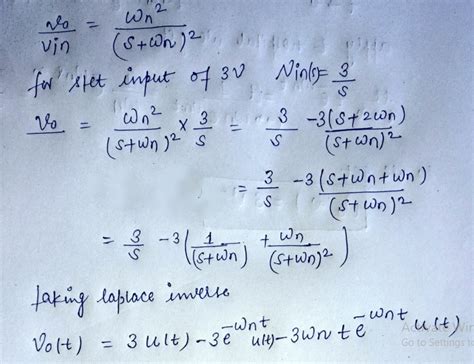 vo/vin = ωn²/(s+ωn)²
for stet input of 3V Vin(s)= 3/s
vo = ωn²/(s+ωn)² × 3/s = 3/s -3(s+2ωn)/(s+ωn)²
= 3/s -3(s+ωn+ωn)/(s+ωn)²
= 3/s -3(1/(s+ωn) + ωn/(s+ωn)²)
taking laplace inverse
vo(t) = 3u(t)-3e^-ωnt u(t)-3ωn t e^-ωnt u(t)
Go to Settings